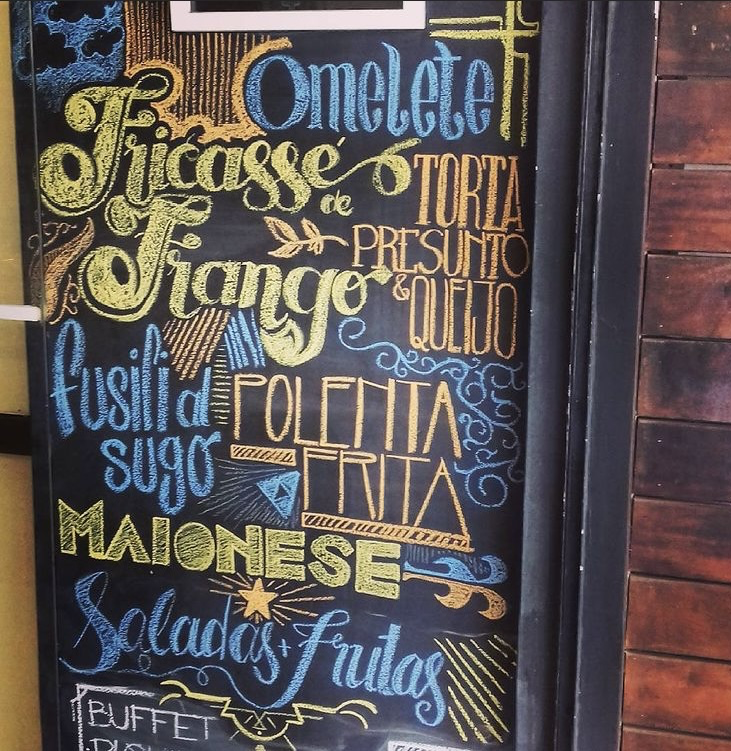 Omelete
Fricassé
de
Frango
TORTA
PRESUNTO
& QUEIJO
fusili al
sugo
POLENTA
FRITA
MAIONESE
Saladas + Frutas
BUFFET